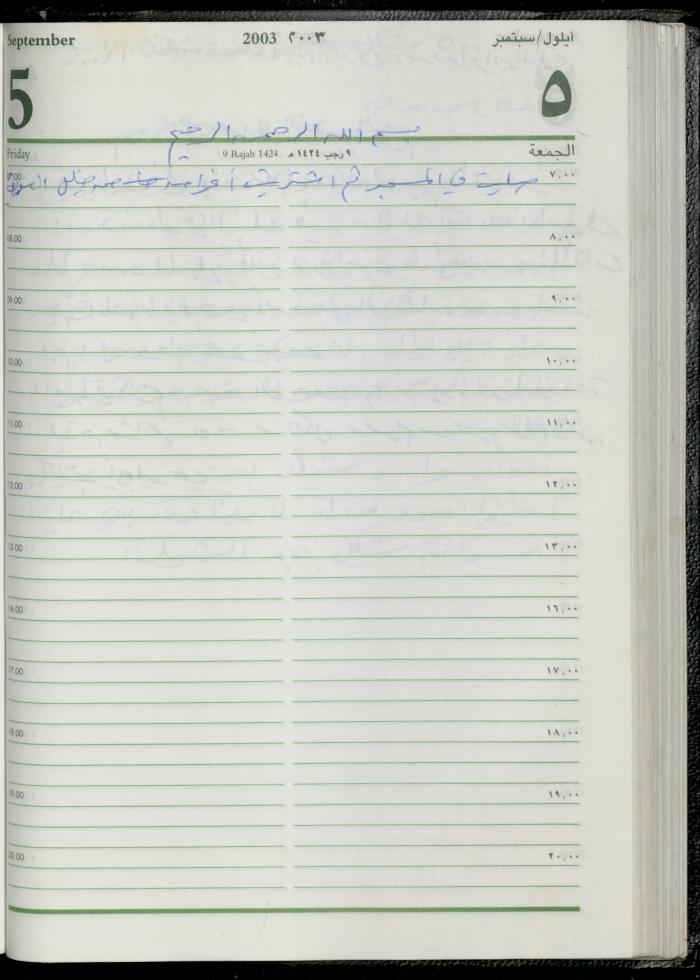 September 2003 ٢٠٠٣ أيلول/سبتمبر
5 ٥
بسم الله الرحمن الرحيم
Friday 9 Rajab 1424 ٩ رجب ١٤٢٤ هـ الجمعة
07.00 ٧,٠٠
صليت في المسجد ثم اشتريت
08.00 ٨,٠٠
09.00 ٩,٠٠
10.00 ١٠,٠٠
11.00 ١١,٠٠
12.00 ١٢,٠٠
13.00 ١٣,٠٠
16.00 ١٦,٠٠
17.00 ١٧,٠٠
18.00 ١٨,٠٠
19.00 ١٩,٠٠
20.00 ٢٠,٠٠